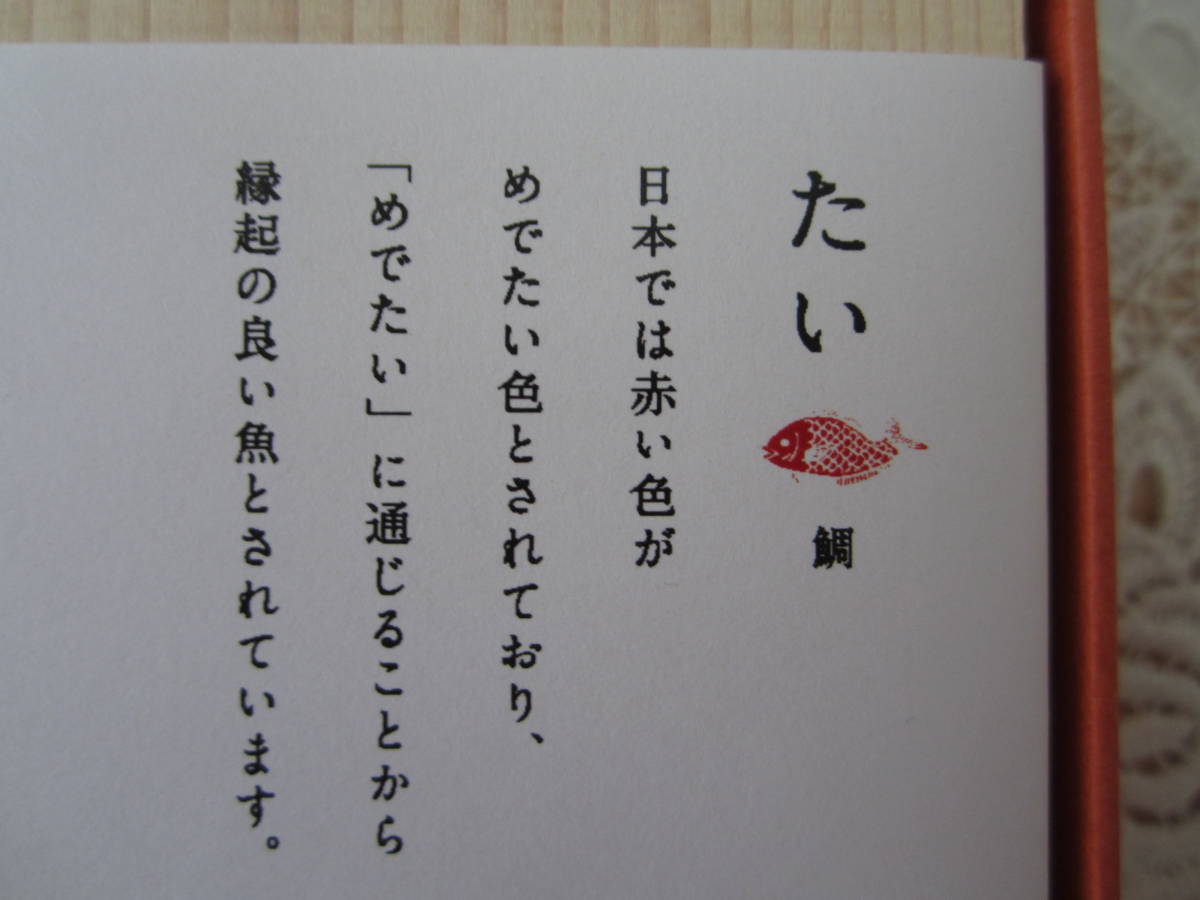 たい 鯛
日本では赤い色が
めでたい色とされており、
「めでたい」に通じることから
縁起の良い魚とされています。